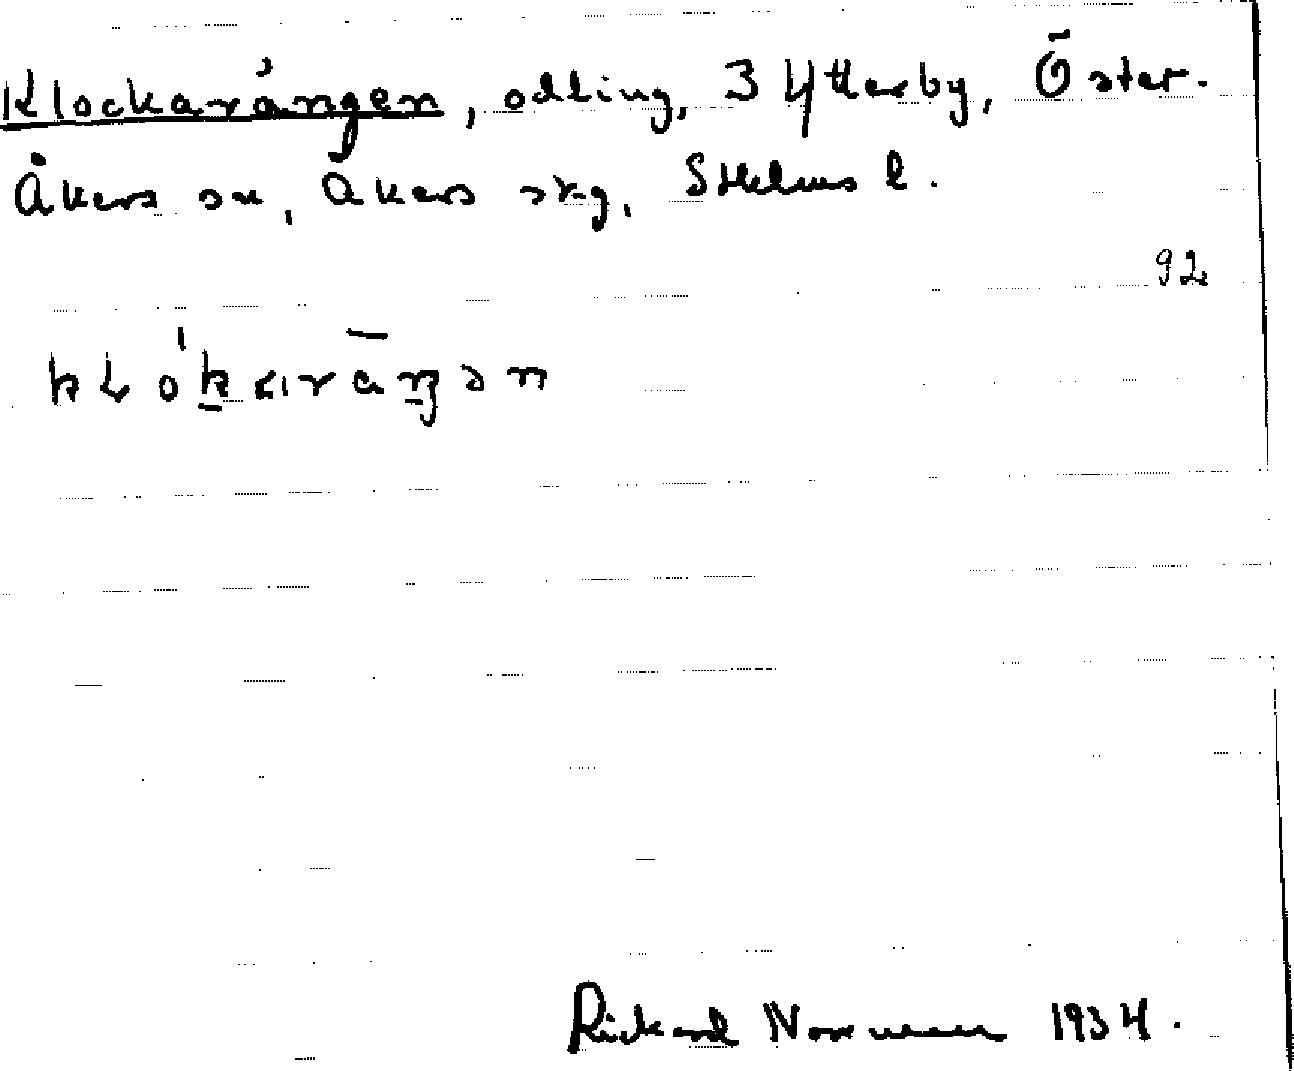 Klockarängen, odling, 3 Ytterby, Öster-
Åkers sn, Åkers skg, Sthlms l.
92
Rickard Norrman 1934.